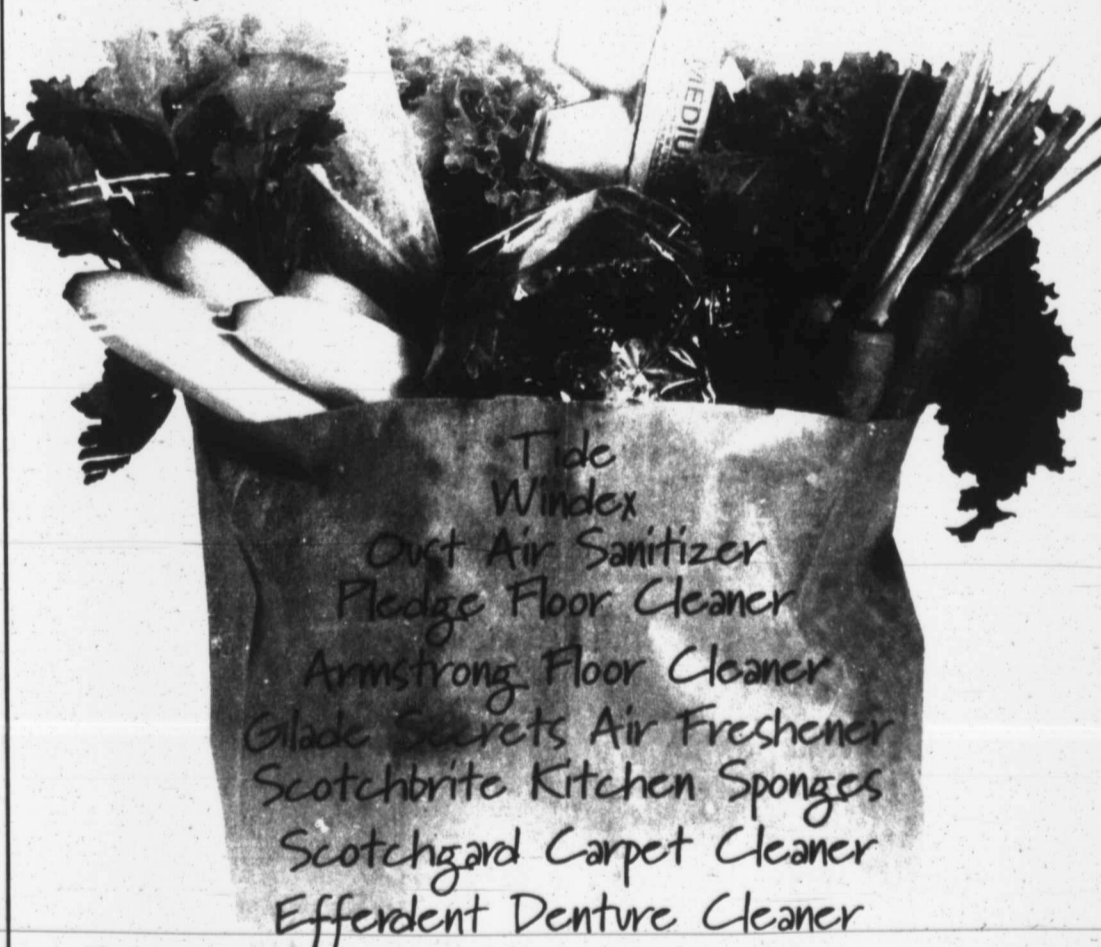 MEDIU
Tide
Windex
Oust Air Sanitizer
Pledge Floor Cleaner
Armstrong Floor Cleaner
Glade Secrets Air Freshener
Scotchbrite Kitchen Sponges
Scotchgard Carpet Cleaner
Efferdent Denture Cleaner